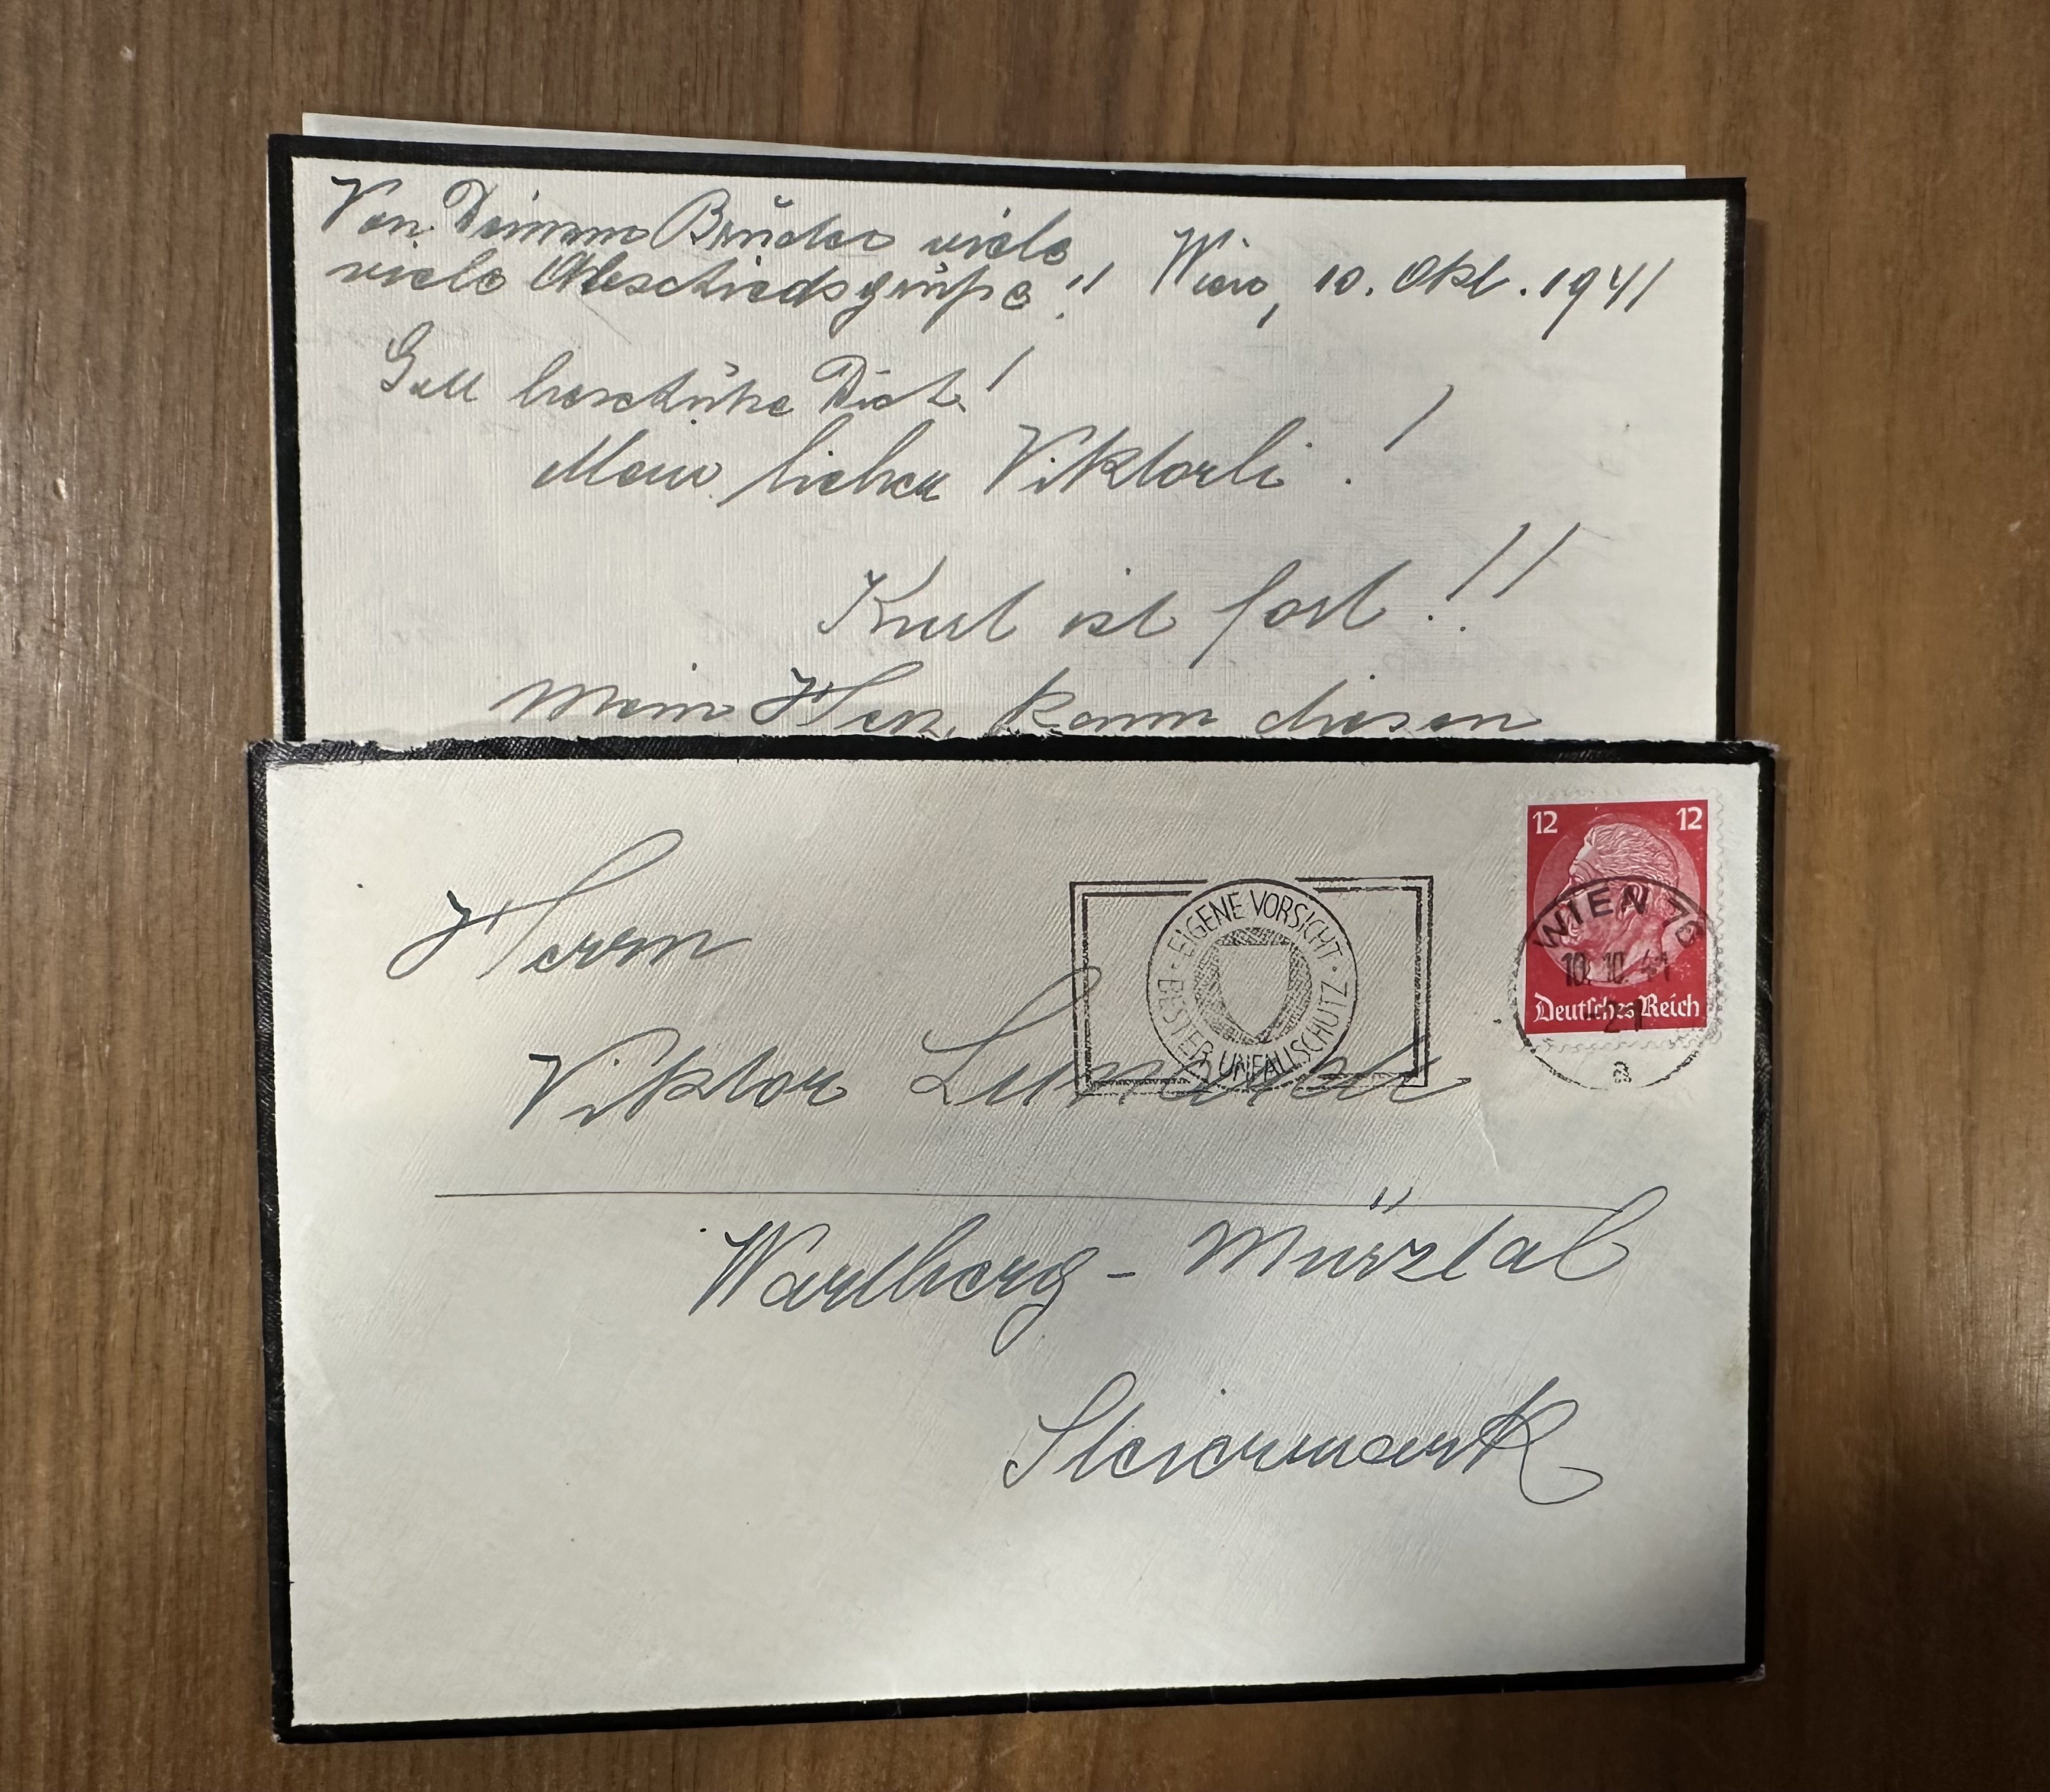 Von Deinem Bruder viele
viele Abschiedsgrüße!!
Wien, 10. Okt. 1941
Gott beschütze Dich!
Mein lieber Viktorli!
Kurt ist fort!!
Mein Herz kann diesen
12 12
WIEN 76
10.10.41
Deutsches Reich
EIGENE VORSICHT · BESTER UNFALLSCHUTZ ·
Herrn
Viktor
Wartberg - Mürztal
Steiermark